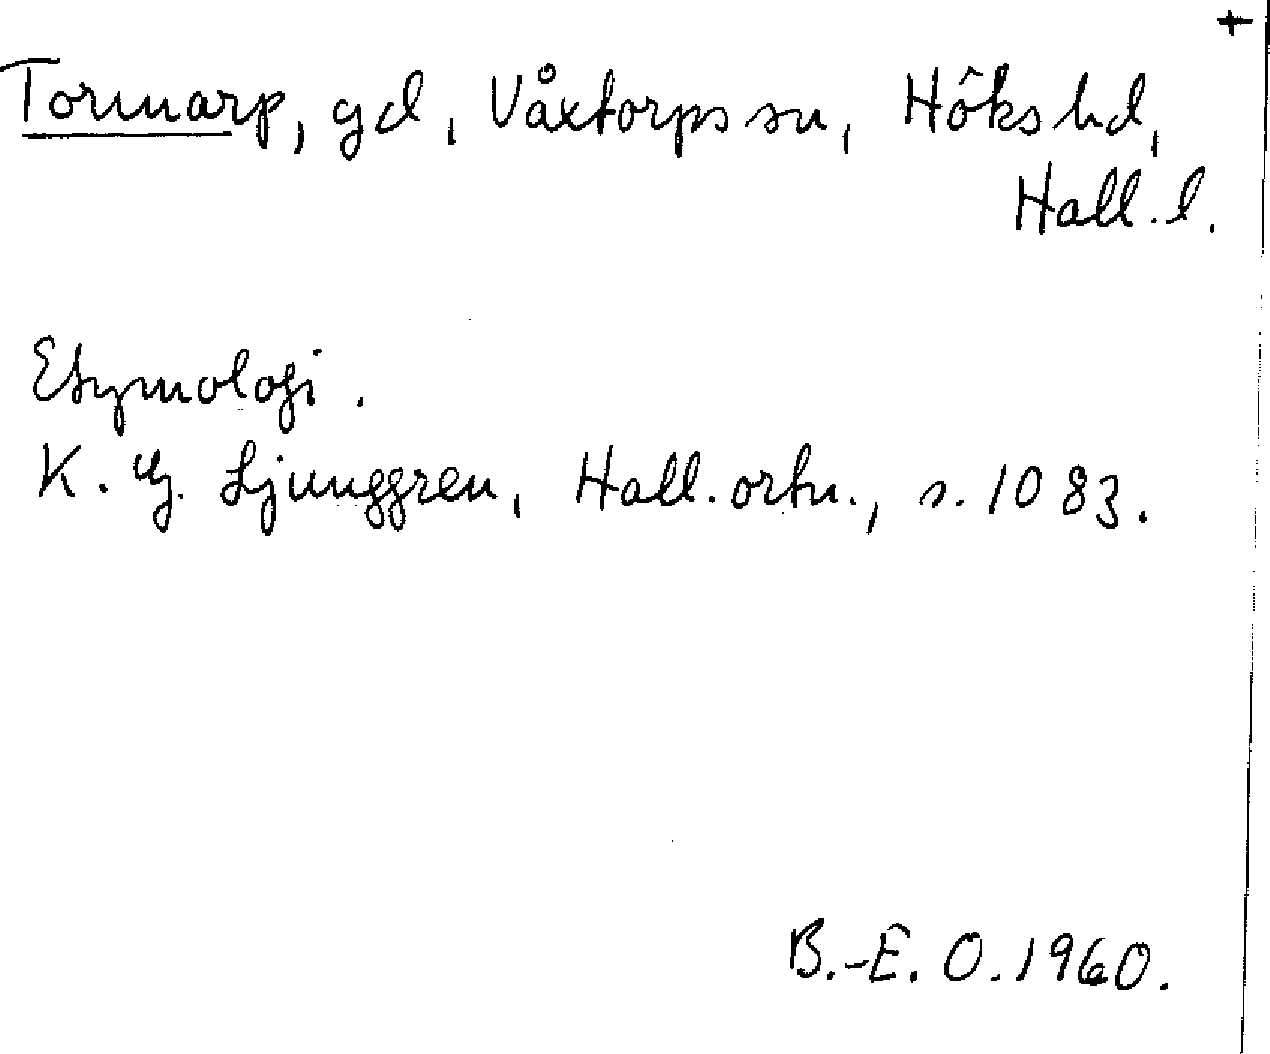 +
Tormarp, gd, Våxtorps sn, Höks hd,
Hall. l.
Etymologi.
K. G. Ljunggren, Hall. ortn., s. 1083.
B.-E. O. 1960.